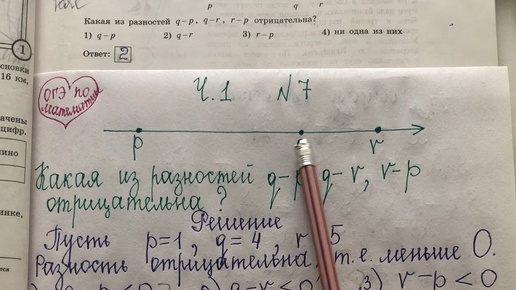 p q r
Какая из разностей q−p, q−r, r−p отрицательна?
1) q−p 2) q−r 3) r−p 4) ни одна из них
Ответ: 2
1
основки
16 км,
ачены
цифр.
мино
инке,
ОГЭ ПО
математике
Ч.1 №7
p r
Какая из разностей q-p, q-r, r-p
отрицательна?
Решение
Пусть p=1, q=4, r=5
Разность отрицательна, т.е. меньше 0.